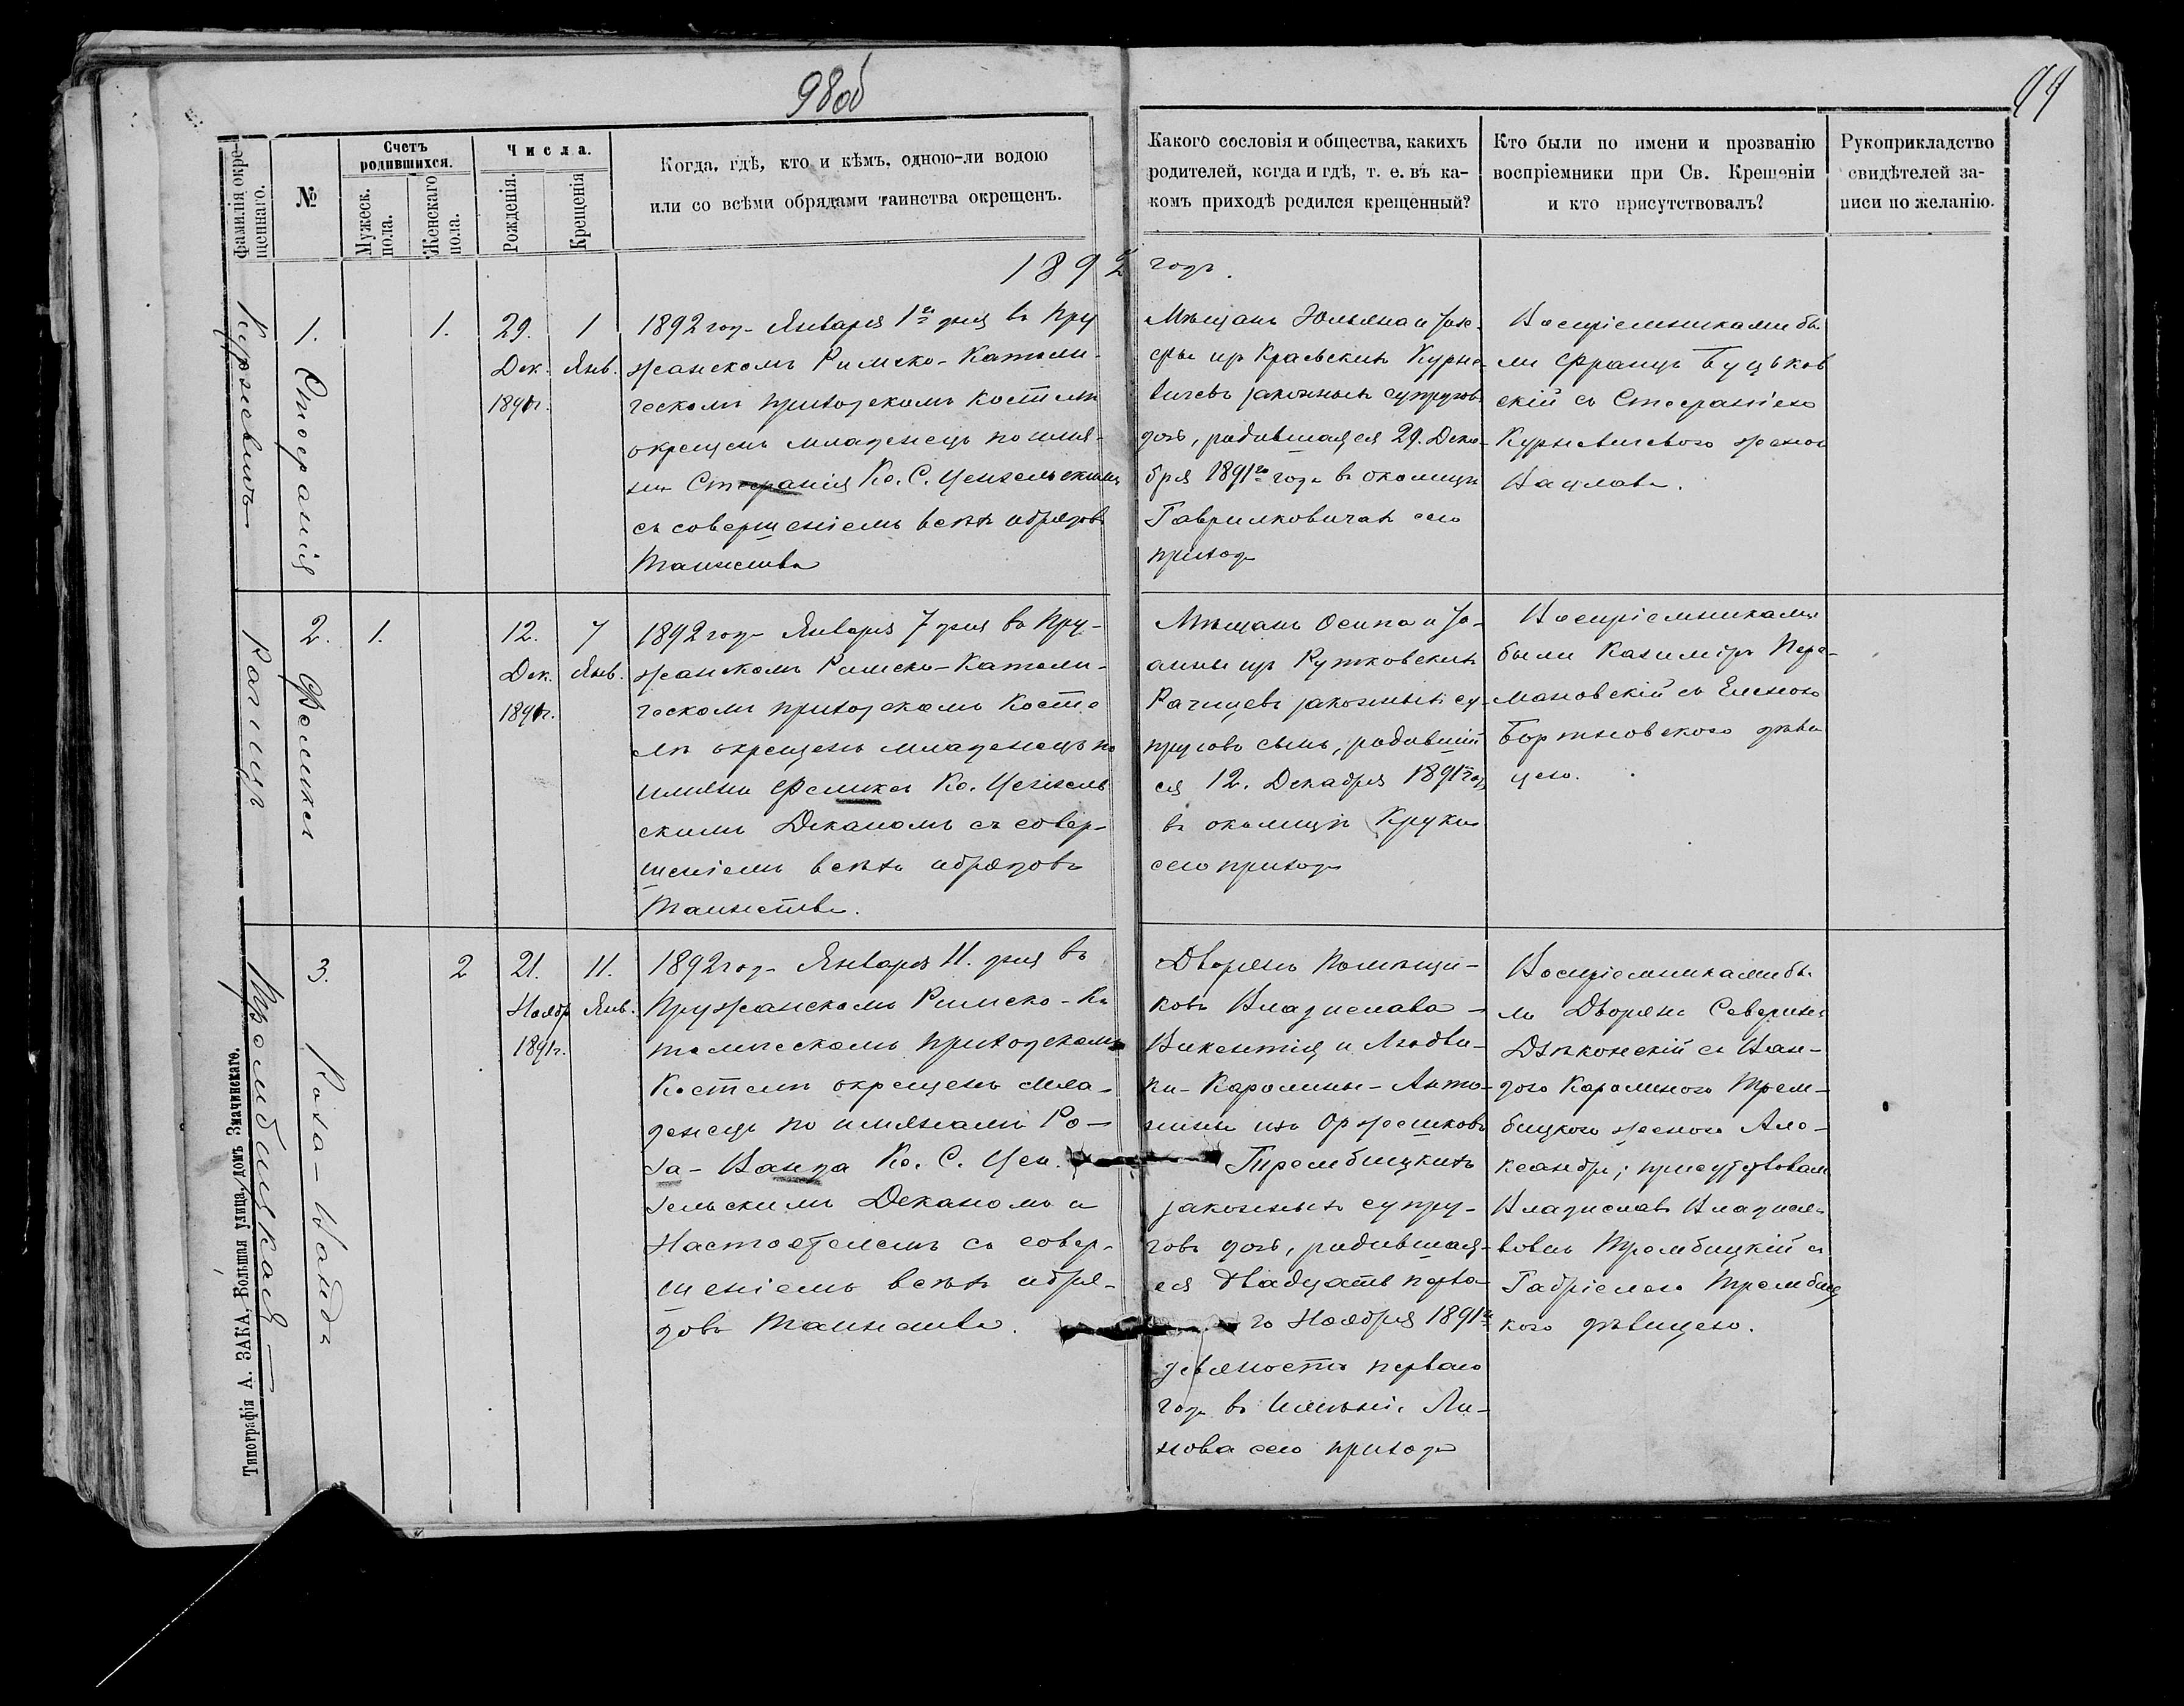 98об
99
Фамилія окре-
щеннаго.
№
Счетъ
родившихся.
Мужеск.
пола.
Женскаго
пола.
Числа.
Рожденія.
Крещенія
Когда, гдѣ, кто и кѣмъ, одною-ли водою
или со всѣми обрядами таинства окрещенъ.
Какого сословія и общества, какихъ
родителей, когда и гдѣ, т. е. въ ка-
комъ приходѣ родился крещенный?
Кто были по имени и прозванію
воспріемники при Св. Крещеніи
и кто присутствовалъ?
Рукоприкладство
свидѣтелей за-
писи по желанію.
1892 года.
Курневичъ
1.
Стефанія
1.
29.
Дек.
1891г.
1
Янв.
1892 года Января 1го дня въ Пру
жанскомъ Римско-Католи-
ческомъ приходскомъ Костелѣ
окрещенъ младенецъ по име-
ни Стефанія Кс. С. Ценгельскимъ
съ совершеніемъ всѣхъ обрядовъ
Таинства
Мѣщанъ Юльяна и Іозе-
фы изъ Краевскихъ Курне-
вичевъ законныхъ супруговъ
дочь, родившаяся 29. Дека-
бря 1891го года въ околицѣ
Гаврилковичахъ сего
прихода
Воспріемниками бы
ли Францъ Буцьков
скій съ Стефаніею
Курневичевою женою
Вацлава.
Рачицъ
2.
Феликсъ
1.
12.
Дек.
1891г.
7
Янв.
1892 года Января 7 дня въ Пру-
жанскомъ Римско-Католи-
ческомъ приходскомъ Косте
лѣ окрещенъ младенецъ по
имени Феликсъ Кс. Ценгель
скимъ Деканомъ съ совер-
шеніемъ всѣхъ обрядовъ
Таинства.
Мѣщанъ Осипа и Іо-
анны изъ Рутковскихъ
Рачицевъ законныхъ су-
пруговъ сынъ, родившій
ся 12. Декабря 1891го года
въ околицѣ Круки
сего прихода
Воспріемниками
были Казиміръ Пере-
мановскій съ Еленою
Бортновскою дѣви
цею.
Трембицкая
3.
Роза-Ванда
2
21.
Ноябр
1891г.
11.
Янв.
1892 года Января 11. дня въ
Пружанскомъ Римско-Ка
толическомъ приходскомъ
Костелѣ окрещенъ мла-
денецъ по именамъ Ро-
за-Ванда Кс. С. Цен.
гельскимъ Деканомъ и
Настоятелемъ съ совер-
шеніемъ всѣхъ обря-
довъ Таинства.
Дворянъ Помѣщи-
ковъ Владислава-
Викентія и Людви-
ки-Каролины-Анто-
нины изъ Оржешковъ
Трембицкихъ
законныхъ супру-
говъ дочь, родившая-
ся двадцать перва-
го Ноября 1891го
девяноста перваго
года въ Имѣніи Ли-
нова сего прихода
Воспріемниками бы
ли Дворяне Северинъ
Дзѣконскій съ Ван-
дою Каролиною Трем-
бицкою женою Але-
ксандра; присутствовали
Владиславъ Владисла-
вовичъ Трембицкій съ
Габріелею Трембиц
кою дѣвицею.
Типографія А. ЗАКА, Большая улица, домъ Змачинскаго.